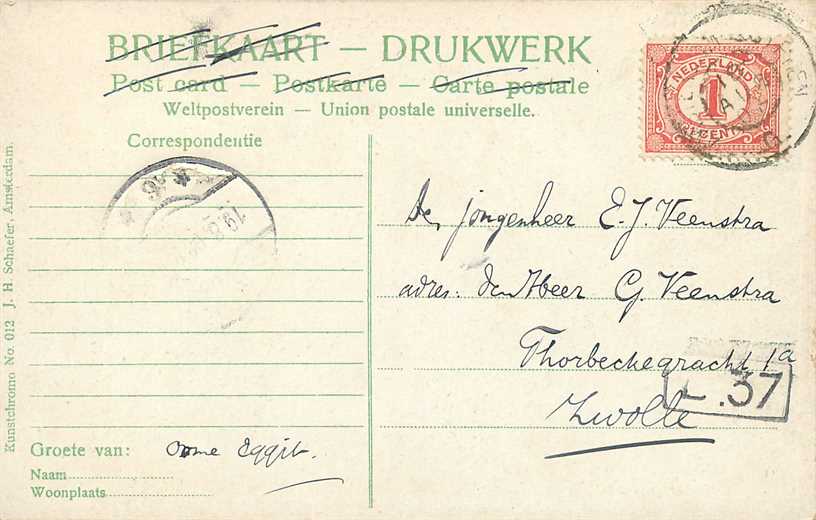 BRIEFKAART — DRUKWERK
Post card — Postkarte — Carte postale
Weltpostverein — Union postale universelle.
NEDERLAND
1
CENT
Correspondentie
De jongenheer E. J. Veenstra
adres: den Heer G Veenstra
Thorbeckegracht 1a
Zwolle
.37
Groete van:
Naam
Woonplaats
Kunstchromo No. 012 J. H. Schaefer, Amsterdam.